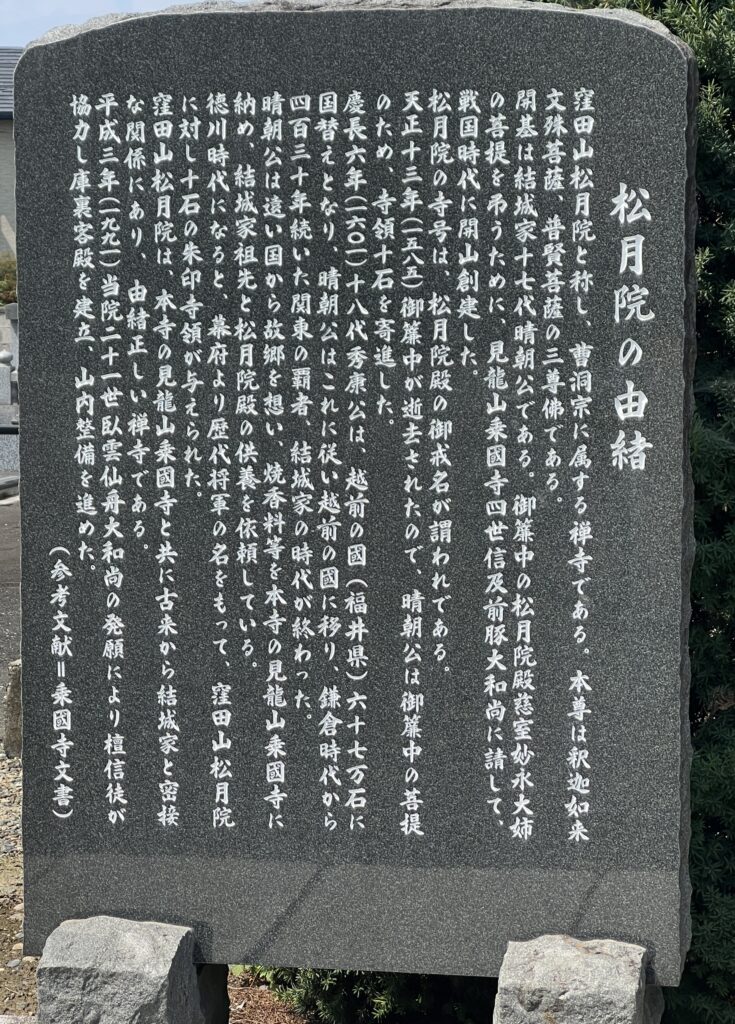 松月院の由緒
窪田山松月院と称し、曹洞宗に属する禅寺である。本尊は釈迦如来
文殊菩薩、普賢菩薩の三尊佛である。
開基は結城家十七代晴朝公である。御簾中の松月院殿慈室妙永大姉
の菩提を弔うために、見龍山乗國寺四世信及前豚大和尚に請して、
戦国時代に開山創建した。
松月院の寺号は、松月院殿の御戒名が謂われである。
天正十三年(一五八五)御簾中が逝去されたので、晴朝公は御簾中の菩提
のため、寺領十石を寄進した。
慶長六年(一六〇一)十八代秀康公は、越前の國(福井県)六十七万石に
国替えとなり、晴朝公はこれに従い越前の國に移り、鎌倉時代から
四百三十年続いた関東の覇者、結城家の時代が終わった。
晴朝公は遠い国から故郷を想い、焼香料等を本寺の見龍山乗國寺に
納め、結城家祖先と松月院殿の供養を依頼している。
徳川時代になると、幕府より歴代将軍の名をもって、窪田山松月院
に対し十石の朱印寺領が与えられた。
窪田山松月院は、本寺の見龍山乗國寺と共に古来から結城家と密接
な関係にあり、由緒正しい禅寺である。
平成三年(一九九一)当院二十一世臥雲仙舟大和尚の発願により檀信徒が
協力し庫裏客殿を建立、山内整備を進めた。
(参考文献＝乗國寺文書)